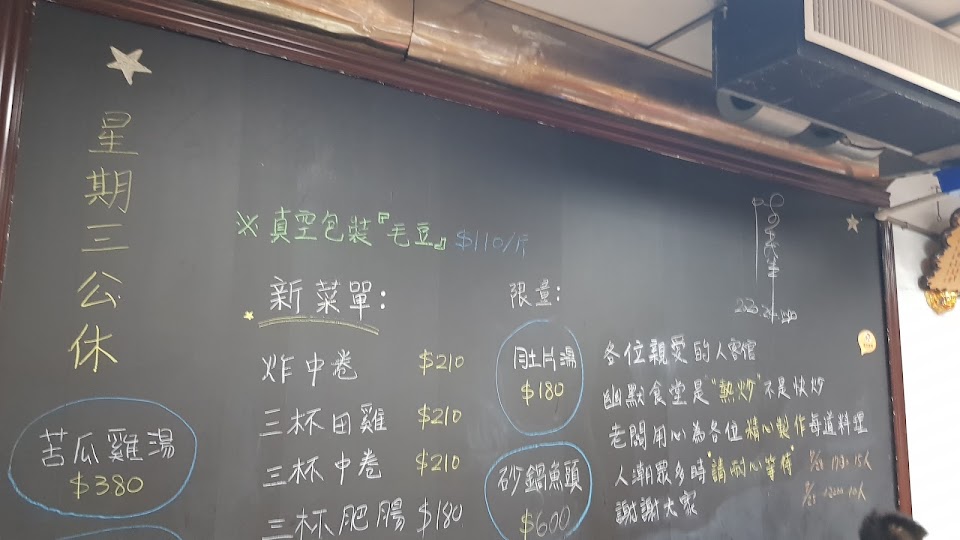 星期三公休
※真空包裝『毛豆』$110/斤
新菜單:
炸中卷 $210
三杯田雞 $210
三杯中卷 $210
三杯肥腸 $180
限量:
肚片湯
$180
砂鍋魚頭
$600
苦瓜雞湯
$380
各位親愛的人客倌
幽默食堂是"熱炒"不是快炒
老闆用心為各位精心製作每道料理
人潮眾多時"請耐心等待"
謝謝大家